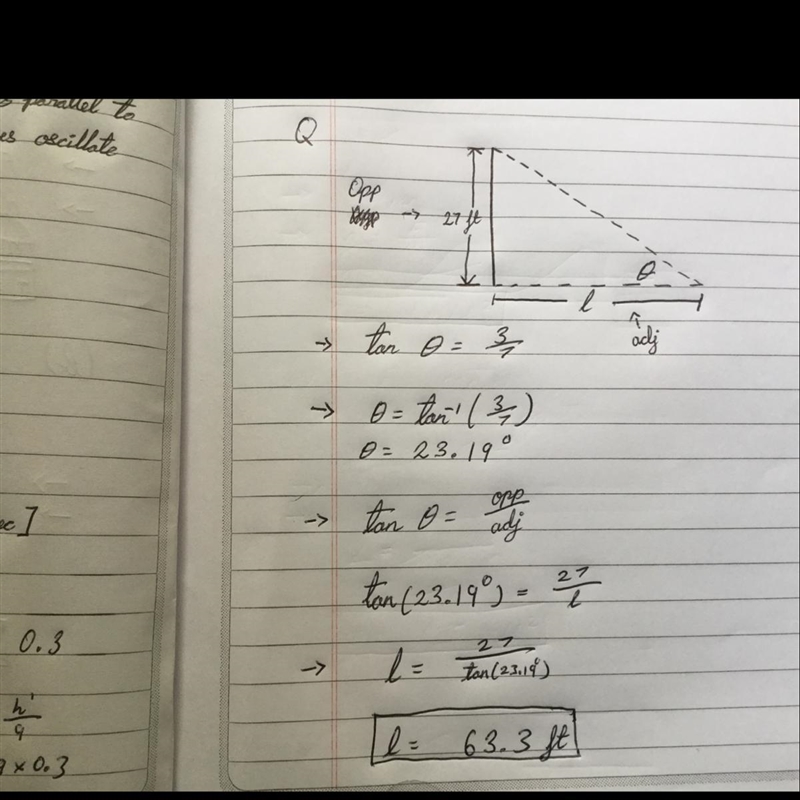 s parallel to
es oscillate
ec]
0.3
h'/9
9 x 0.3
Q
Opp
→ 27 ft
θ
l
adj
→ tan θ = 3/7
→ θ = tan⁻¹ (3/7)
θ = 23.19°
→ tan θ = opp/adj
tan(23.19°) = 27/l
→ l = 27/tan(23.19°)
l = 63.3 ft